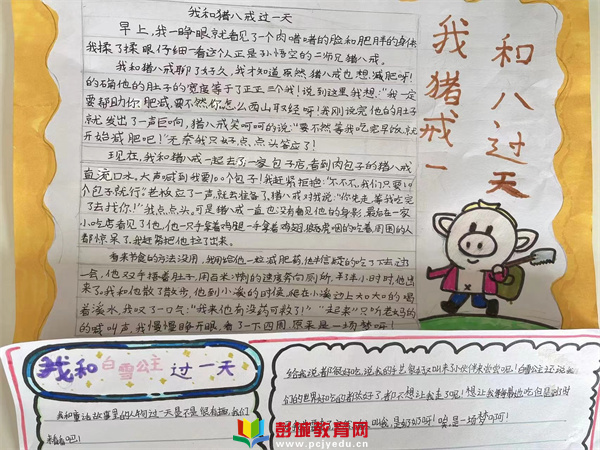 我和猎八戒过一天
早上,我一睁眼就看见了一个肉嘟嘟的脸和肥胖的身体
我揉了揉眼仔细一看这个人正是孙悟空的二师兄猎八戒。
我和猪八戒聊了好久,我才知道原然猎八戒也想减肥呀!
的确他的肚子的宽度等于了正正三个我!说到这里我想:"我一定
要帮助你肥减,要不然你怎么西山取经呀!我刚说完他的肚子
就发出了一声巨响,猎八戒笑呵呵的说:"要不然等我吃完早饭就
开始减肥吧!"无奈我只好点点头答应了!
现在,我和猪八戒一起去了一家包子店,看到肉包子的猎八戒
直流口水,大声喊到我要100个包子!我赶紧拒绝:"不不不,我们只要10
个包子就行。老板应了一声,就去准备了,猎八戒对我说:"你先走,等我吃完
了去找你!"我点点头。可是猪八戒一直也没有看见他的身影,最后在一家
小吃店看见了他,他一只手拿着鸡腿一手拿着鸡翅,狼吞虎咽的吃着周围的人
都惊呆了,我赶紧把他拉了出来。
看来节食的方法没用,我用给他一粒减肥药,他半信疑的吃了下去过
一会,他双手捂着肚子,用百米冲刺的速度奔向厕所,半半小时时,他出
来了。我和他散了散步,他到小溪的时候,爬在小溪边上大大口的喝
着溪水,我叹了一口气:"我来他有没药可救了!" "起来"只听老妈的
的喊叫声,我慢慢睁开眼,看了一下四周,原来是一场梦呀!
我和猎八戒过一天
我和白雪公主过一天
我和童话故事里的人物过一天是不是很有趣,我们
看看吧!
给我说都很好吃,说我的手艺很好又叫来小伙伴来吃呢!白雪公主还说我
是一场梦呵!
彭城教育网
www.pcjyedu.cn